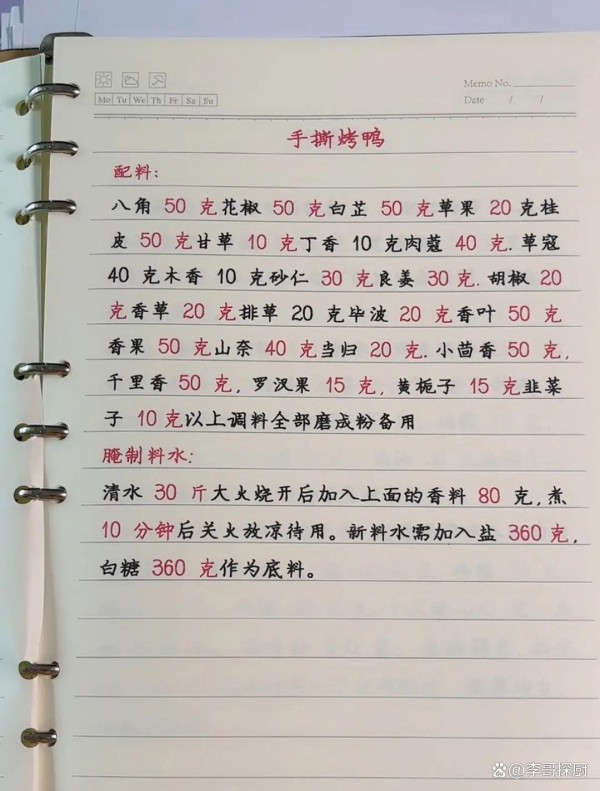 Memo No.
Mo Tu We Th Fr Sa Su
Date / /
手撕烤鸭
配料:
八角 50 克花椒 50 克白芷 50 克草果 20 克桂
皮 50 克甘草 10 克丁香 10 克肉蔻 40 克. 草寇
40 克木香 10 克砂仁 30 克良姜 30 克. 胡椒 20
克香草 20 克排草 20 克毕波 20 克香叶 50 克
香果 50 克山奈 40 克当归 20 克. 小茴香 50 克,
千里香 50 克, 罗汉果 15 克, 黄栀子 15 克韭菜
子 10 克以上调料全部磨成粉备用
腌制料水:
清水 30 斤大火烧开后加入上面的香料 80 克, 煮
10 分钟后关火放凉待用。新料水需加入盐 360 克,
白糖 360 克作为底料。
@李哥探厨